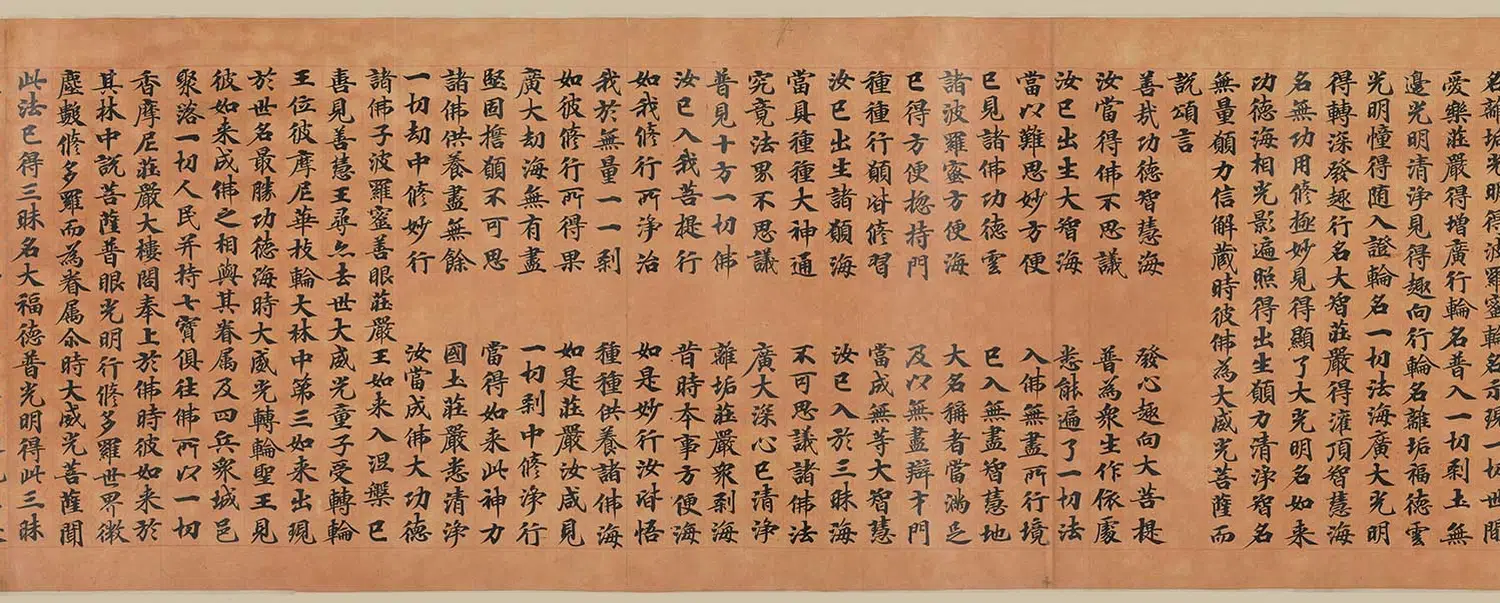 名離垢光明得波羅蜜輪名示現一切世間
愛樂莊嚴得增廣行輪名普入一切剎土無
邊光明清淨見得趣向行輪名離垢福德雲
光明幢得随入證輪名一切法海廣大光明
得轉深發趣行名大智莊嚴得灌頂智慧海
名無功用修極妙見得顯了大光明名如来
功德海相光影遍照得出生願力清淨智名
無量願力信解藏時彼佛為大威光菩薩而
說頌言
善哉功德智慧海　發心趣向大菩提
汝當得佛不思議　普為衆生作依處
汝已出生大智海　悉能遍了一切法
當以難思妙方便　入佛無盡所行境
已見諸佛功德雲　已入無盡智慧地
諸波羅蜜方便海　大名稱者當滿足
已得方便惣持門　及以無盡辯才門
種種行願皆修習　當成無等大智慧
汝已出生諸願海　汝已入於三昧海
當具種種大神通　不可思議諸佛法
究竟法界不思議　廣大深心已清淨
普見十方一切佛　離垢莊嚴衆剎海
汝已入我菩提行　昔時本事方便海
如我修行所淨治　如是妙行汝皆悟
我於無量一一剎　種種供養諸佛海
如彼修行所得果　如是莊嚴汝咸見
廣大劫海無有盡　一切剎中修淨行
堅固擔願不可思　當得如来此神力
諸佛供養盡無餘　國土莊嚴悉清淨
一切劫中修妙行　汝當成佛大功德
諸佛子波羅蜜善眼莊嚴王如来入涅槃已
善見善慧王尋亦去世大威光童子受轉輪
王位彼摩尼華枝輪大林中第三如来出現
於世名最勝功德海時大威光轉輪聖王見
彼如来成佛之相與其眷属及四兵衆城邑
聚落一切人民并持七寶俱往佛所以一切
香摩尼莊嚴大樓閣奉上於佛時彼如来於
其林中說菩薩普眼光明行修多羅世界微
塵數修多羅而為眷属尒時大威光菩薩聞
此法已得三昧名大福德普光明得此三昧